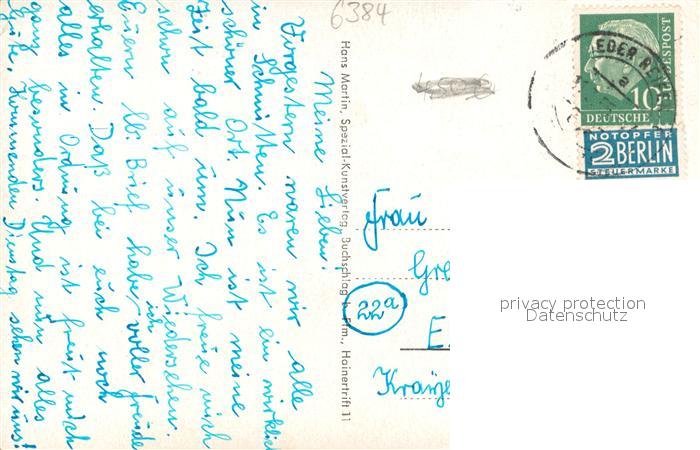 6384
Meine Lieben!
Vorgestern waren wir alle
in Schmitten. Es ist ein wirklich
schöner Ort. Nun ist meine
Zeit bald um. Ich freue mich
schon auf unser Wiedersehen.
Euern lb. Brief habe ich voller Freude
erhalten. Daß bei euch noch
alles in Ordnung ist freut mich
ganz besonders. Und nun alles
Gute, Kommenden Dienstag sehen wir uns!
Hans Martin, Spezial-Kunstverlag, Buchschlag b. Ffm., Hainertrift 11
EDER RE
10
BUNDESPOST
DEUTSCHE
NOTOPFER
2 BERLIN
STEUERMARKE
Frau
Gre
22a
E.
privacy protection
Datenschutz